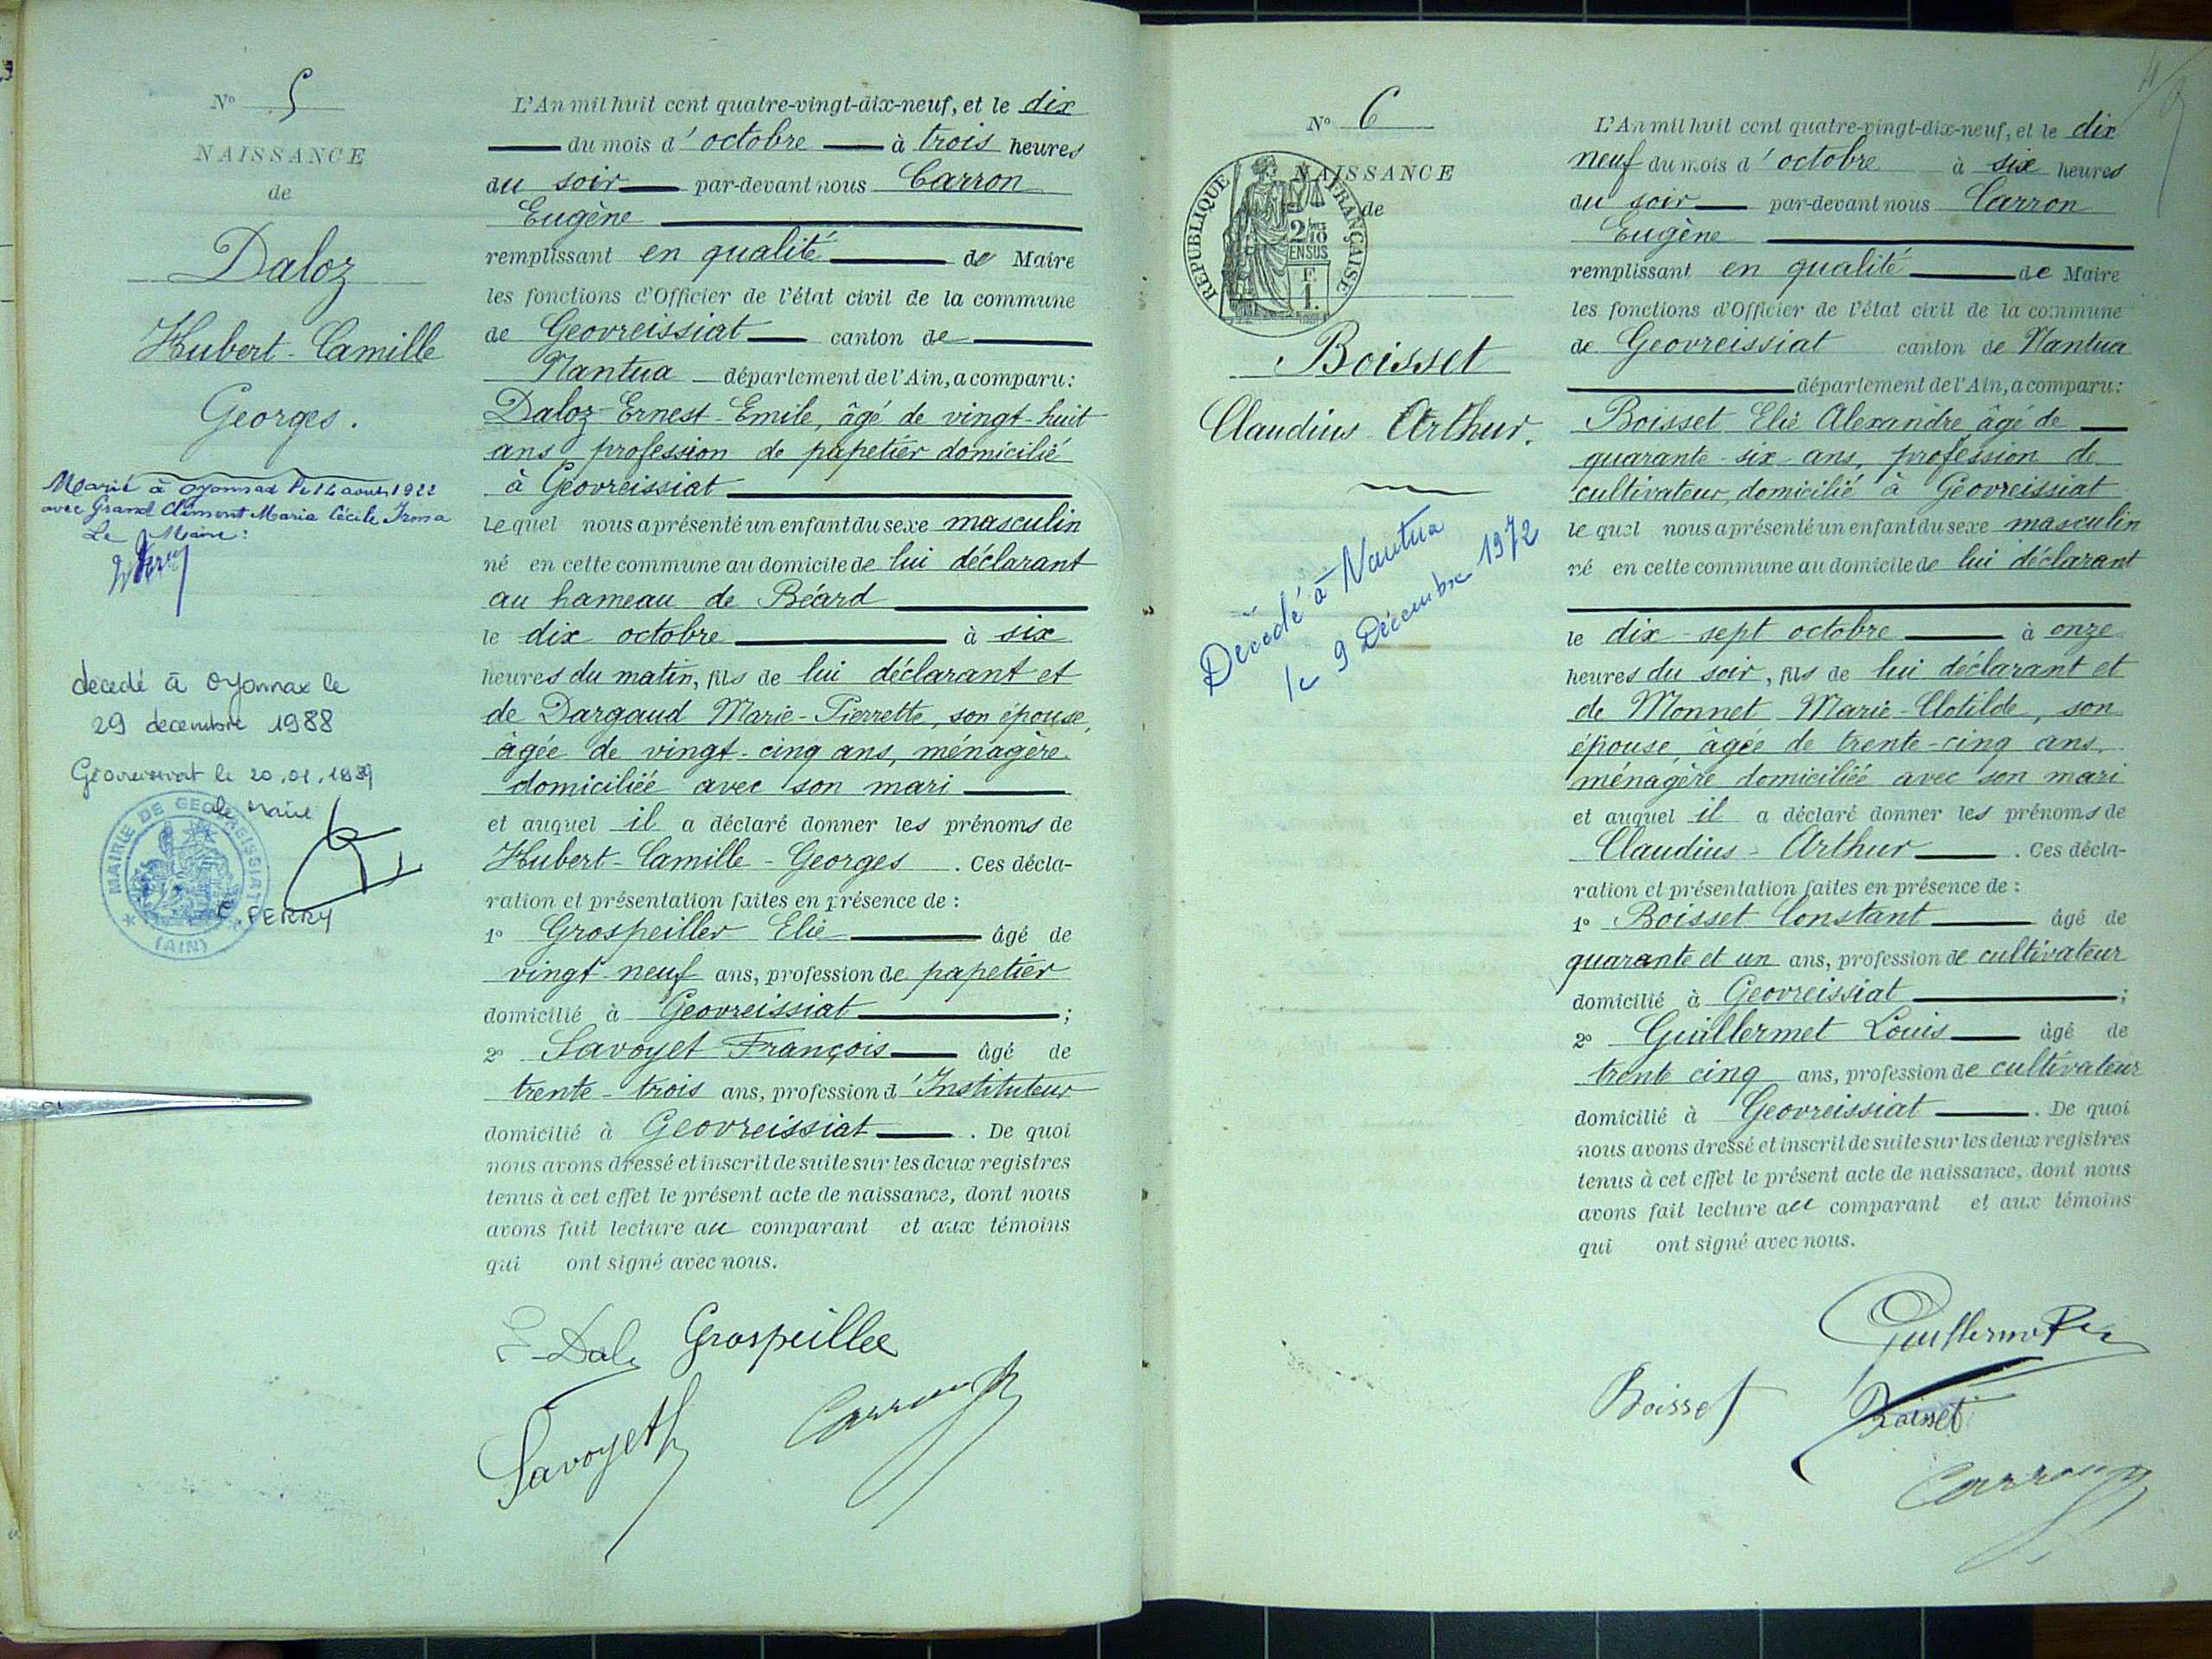 N° 5
NAISSANCE
de
Daloz
Hubert-Camille
Georges.
Marié à Oyonnax le 14 août 1922
avec Grand Clément Maria Cécile Irma
Le Maire:
décédé à Oyonnax le
29 decembre 1988
Géovreissiat le 20.01.1989
le Maire
MAIRIE DE GEOVREISSIAT
(AIN)
C. FERRY
L'An mil huit cent quatre-vingt-dix-neuf, et le dix
du mois d'octobre à trois heures
du soir par-devant nous Carron
Eugène
remplissant en qualité de Maire
les fonctions d'Officier de l'état civil de la commune
de Geovreissiat canton de
Nantua département de l'Ain, a comparu:
Daloz Ernest-Emile, âgé de vingt-huit
ans, profession de papetier domicilié
à Géovreissiat
lequel nous a présenté un enfant du sexe masculin
né en cette commune au domicile de lui déclarant
au hameau de Béard
le dix octobre à six
heures du matin, fils de lui déclarant et
de Dargaud Marie-Pierrette, son épouse,
âgée de vingt-cinq ans, ménagère
domiciliée avec son mari
et auquel il a déclaré donner les prénoms de
Hubert-Camille-Georges. Ces décla-
ration et présentation faites en présence de :
1° Grospeiller Elie âgé de
vingt-neuf ans, profession de papetier
domicilié à Geovreissiat ;
2° Savoyet François âgé de
trente-trois ans, profession d'Instituteur
domicilié à Geovreissiat. De quoi
nous avons dressé et inscrit de suite sur les deux registres
tenus à cet effet le présent acte de naissance, dont nous
avons fait lecture au comparant et aux témoins
qui ont signé avec nous.
E. Daloz Grospeiller
Savoyet Carron
N° 6
NAISSANCE
de
REPUBLIQUE FRANÇAISE
2/10
EN SUS
F.
1.
Boisset
Claudius-Arthur.
Décédé à Nantua
le 9 Décembre 1972
L'An mil huit cent quatre-vingt-dix-neuf, et le dix
neuf du mois d'octobre à six heures
du soir par-devant nous Carron
Eugène
remplissant en qualité de Maire
les fonctions d'Officier de l'état civil de la commune
de Geovreissiat canton de Nantua
département de l'Ain, a comparu:
Boisset Elie Alexandre âgé de
quarante-six ans, profession de
cultivateur, domicilié à Géovreissiat
lequel nous a présenté un enfant du sexe masculin
né en cette commune au domicile de lui déclarant
le dix-sept octobre à onze
heures du soir, fils de lui déclarant et
de Monnet Marie-Clotilde, son
épouse, âgée de trente-cinq ans,
ménagère domiciliée avec son mari
et auquel il a déclaré donner les prénoms de
Claudius-Arthur. Ces décla-
ration et présentation faites en présence de :
1° Boisset Constant âgé de
quarante et un ans, profession de cultivateur
domicilié à Geovreissiat ;
2° Guillermet Louis âgé de
trente cinq ans, profession de cultivateur
domicilié à Geovreissiat. De quoi
nous avons dressé et inscrit de suite sur les deux registres
tenus à cet effet le présent acte de naissance, dont nous
avons fait lecture au comparant et aux témoins
qui ont signé avec nous.
Guillermet
Boisset Boisset
Carron